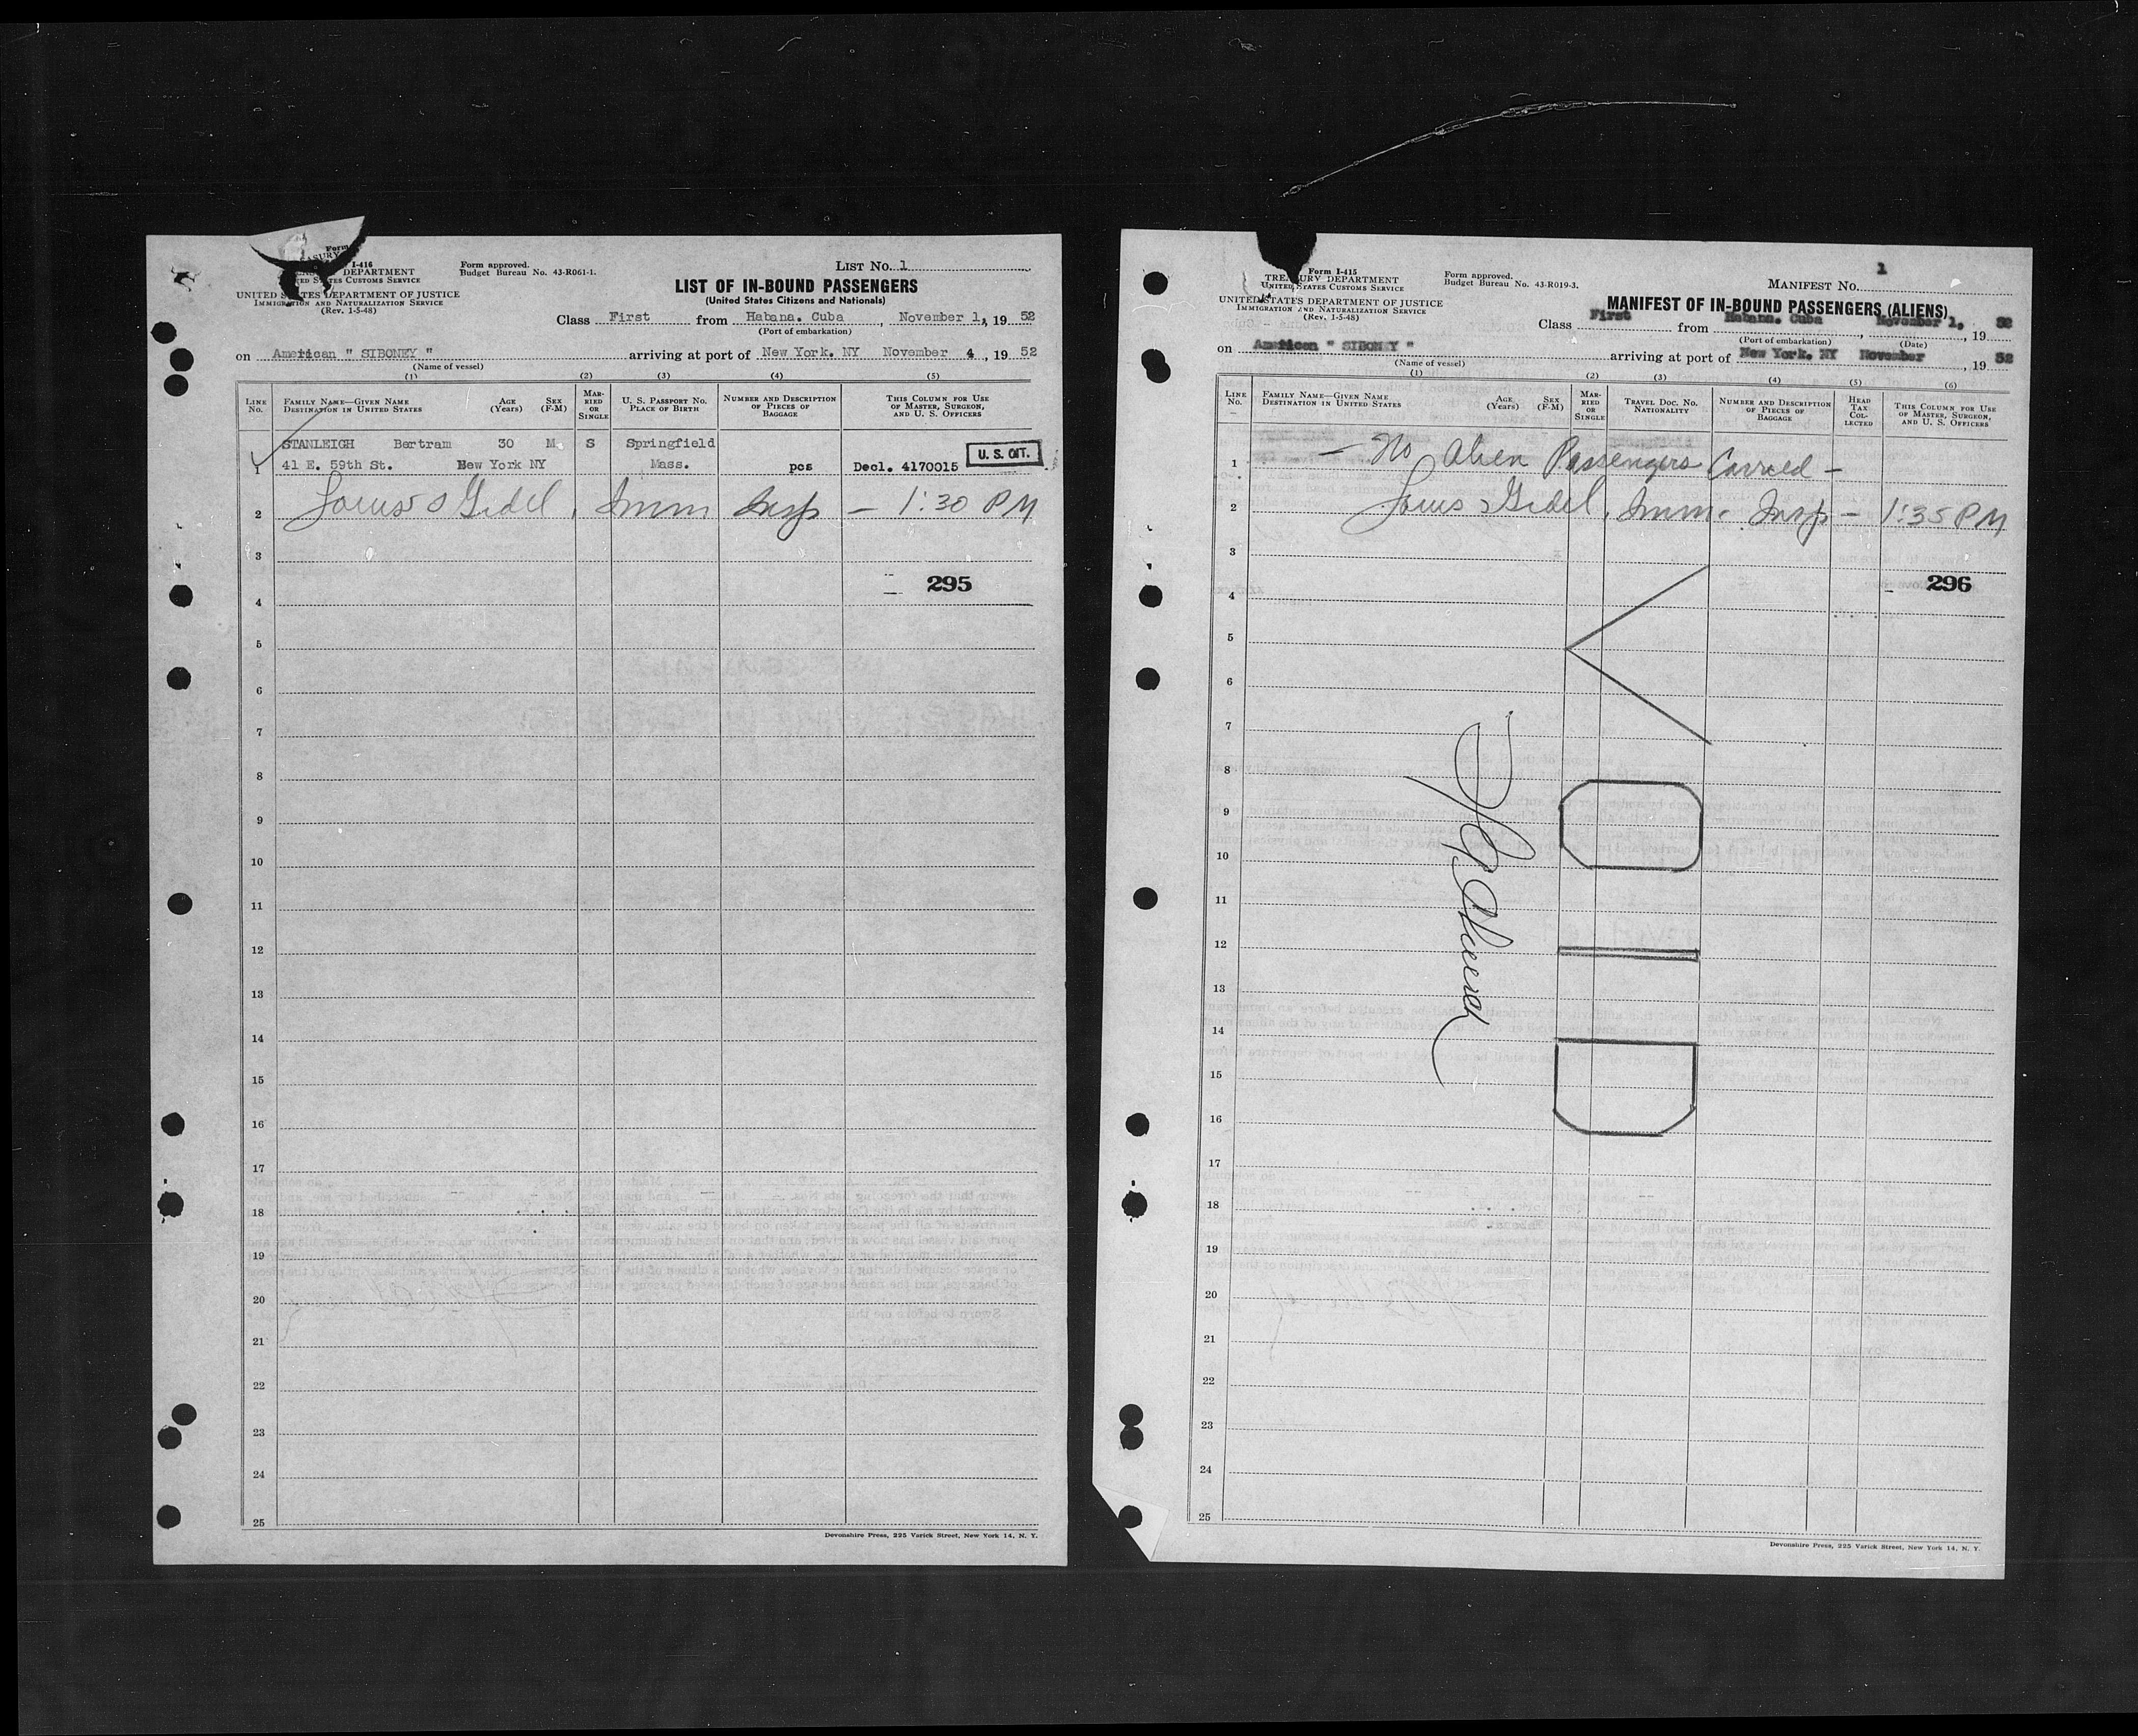 Form I-416
TREASURY DEPARTMENT
UNITED STATES CUSTOMS SERVICE
UNITED STATES DEPARTMENT OF JUSTICE
IMMIGRATION AND NATURALIZATION SERVICE
(Rev. 1-5-48)
Form approved.
Budget Bureau No. 43-R061-1.
LIST No. 1
LIST OF IN-BOUND PASSENGERS
(United States Citizens and Nationals)
Class First from Habana. Cuba , November 1, , 19 52
(Port of embarkation)
on American " SIBONEY " arriving at port of New York. NY November 4 , 19 52
(Name of vessel)
(1) (2) (3) (4) (5)
LINE No. FAMILY NAME—GIVEN NAME DESTINATION IN UNITED STATES AGE (Years) SEX (F-M) MARRIED OR SINGLE U. S. PASSPORT NO. PLACE OF BIRTH NUMBER AND DESCRIPTION OF PIECES OF BAGGAGE THIS COLUMN FOR USE OF MASTER, SURGEON, AND U. S. OFFICERS
STANLEIGH Bertram 30 M S Springfield
1 41 E. 59th St. New York NY Mass. pcs Decl. 4170015 U. S. CIT.
2 Louis S Gidel, Imm Insp — 1:30 PM
3
295
4
5
6
7
8
9
10
11
12
13
14
15
16
17
18
19
20
21
22
23
24
25
Devonshire Press, 225 Varick Street, New York 14, N. Y.
Form I-415
TREASURY DEPARTMENT
UNITED STATES CUSTOMS SERVICE
UNITED STATES DEPARTMENT OF JUSTICE
IMMIGRATION AND NATURALIZATION SERVICE
(Rev. 1-5-48)
Form approved.
Budget Bureau No. 43-R019-3.
MANIFEST No. 1
MANIFEST OF IN-BOUND PASSENGERS (ALIENS)
Class First from Habana. Cuba , November 1, , 19 52
(Port of embarkation) (Date)
on American " SIBONEY " arriving at port of New York. NY November , 19 52
(Name of vessel)
(1) (2) (3) (4) (5) (6)
LINE No. FAMILY NAME—GIVEN NAME DESTINATION IN UNITED STATES AGE (Years) SEX (F-M) MARRIED OR SINGLE TRAVEL DOC. NO. NATIONALITY NUMBER AND DESCRIPTION OF PIECES OF BAGGAGE HEAD TAX COLLECTED THIS COLUMN FOR USE OF MASTER, SURGEON, AND U. S. OFFICERS
1 — No Alien Passengers Carried —
2 Louis S Gidel, Imm. Insp — 1:35 PM
3
296
4
5
6
7
8
9
10
11
12
13
14
15
16
17
18
19
20
21
22
23
24
25
VOID
Devonshire Press, 225 Varick Street, New York 14, N. Y.